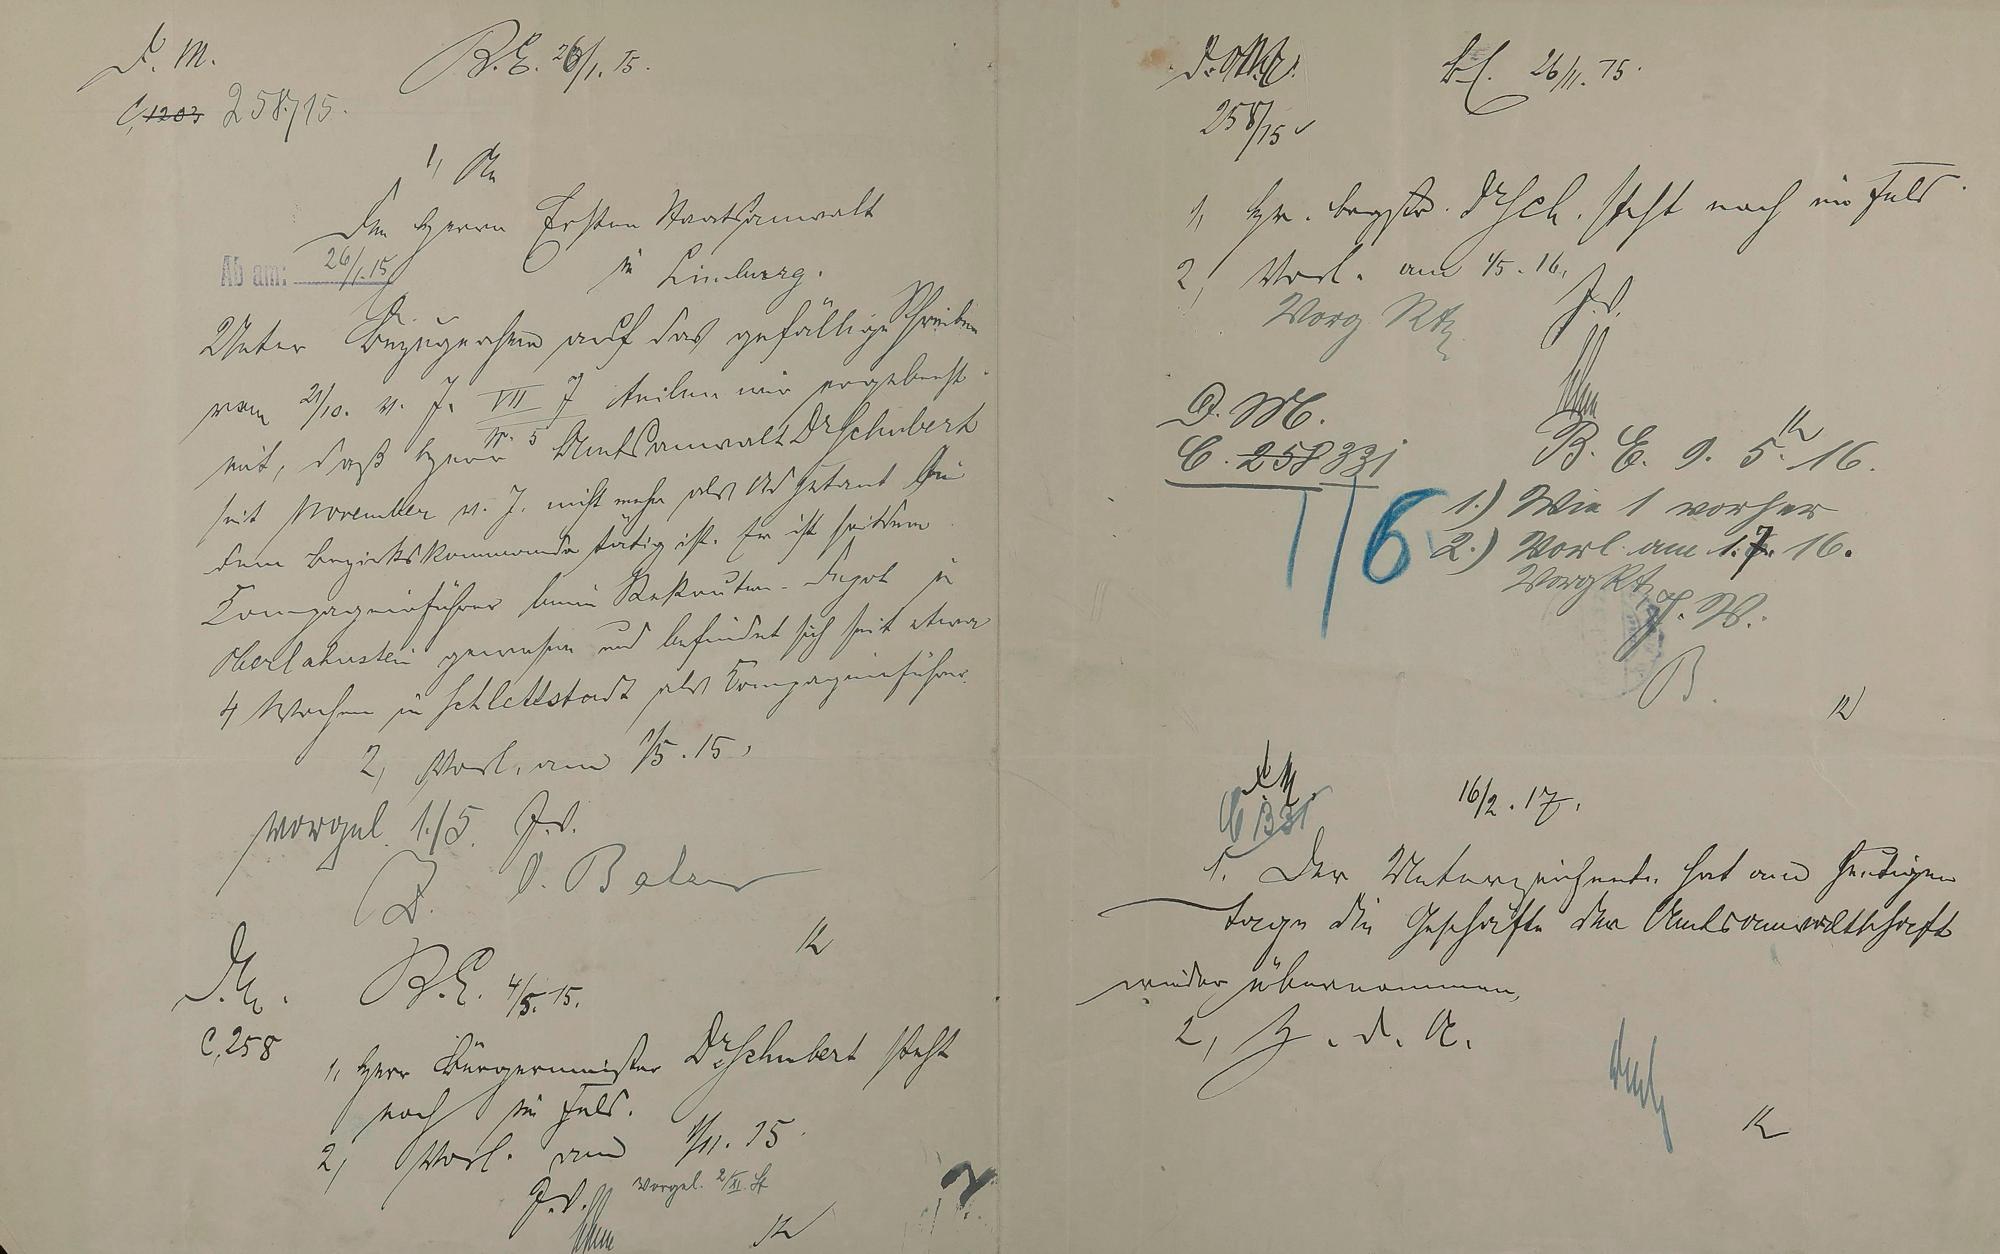 D. M.
B. E. 26/1. 15.
C, 1203 258/15.
1, An
den Herrn Ersten Staatsanwalt
in Limburg.
Ab am: 26/1. 15
Unter Bezugnahme auf das gefällige Schreiben
vom 21/10. v. J. VII J
Nr. 5 teilen wir ergebenst
mit, daß Herr Amtsanwalt Dr Schubert
seit November v. J. nicht mehr als Adjutant bei
dem Bezirkskommando tätig ist. Er ist seitdem
Kompagnieführer beim Rekruten-Depot in
Oberlahnstein gewesen und befindet sich seit etwa
4 Wochen in Schlettstadt als Kompagnieführer.
2, Vorl. am 1/5. 15.
vorgel. 1./5. J. V.
K
D. M.
B. E. 4/5. 15.
C, 258
1, Herr Bürgermeister Dr Schubert steht
noch im Feld.
2, Vorl. am 1/11. 15
J. V. vorgel. 2/XI.
K
D. M.
26/11. 15.
258/15
1, Hr. Bgstr. Dr Sch. steht noch im Feld.
2, Vorl. am 1/5. 16.
J. V.
Vorg
D. M.
B. E. 9. 5. 16.
K
C. 258 331
1.) Wie 1 vorher
2.) Vorl. am 1. 7. 16.
1/6
Vorg
J. V.
B.
K
D. M.
16/2. 17.
C 331
1. Der Unterzeichnete hat am heutigen
Tage die Geschäfte der Amtsanwaltschaft
wieder übernommen.
2, Z. d. A.
K